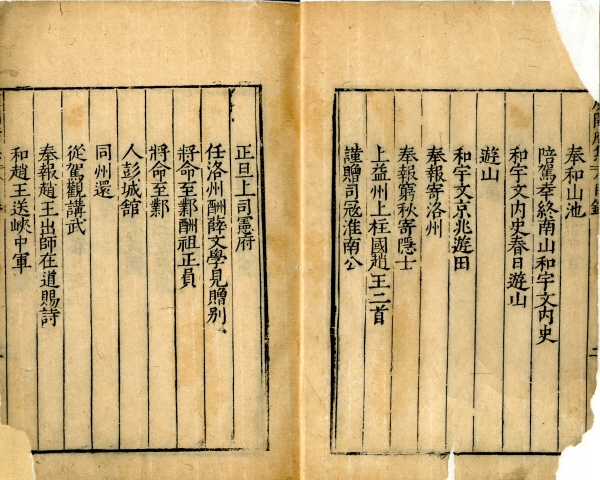 奉和山池
陪駕幸終南山和宇文内史
和宇文内史春日遊山
遊山
和宇文京兆遊田
奉報寄洛州
奉報窮秋寄隱士
上益州上柱國趙王二首
謹贈司冦淮南公
正旦上司憲府
任洛州酬薛文學見贈别
將命至鄴酬祖正員
將命至鄴
入彭城館
同州還
從駕觀講武
奉報趙王出師在道賜詩
和趙王送峽中軍